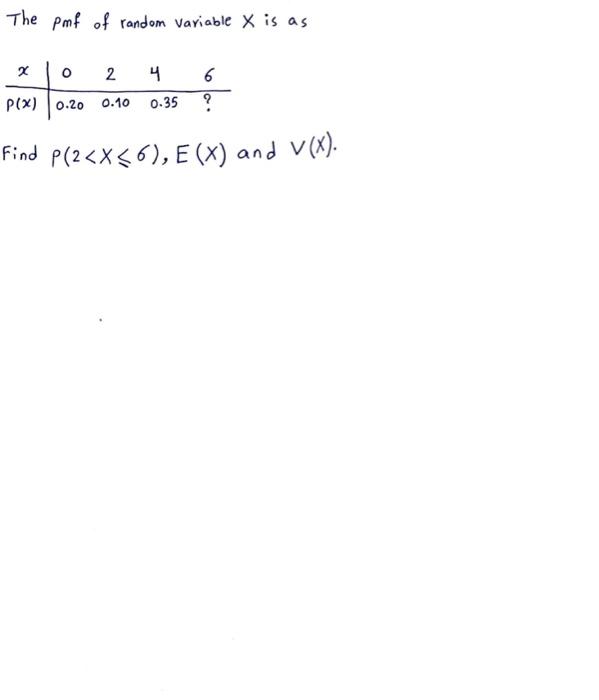 The pmf of random variable X is as
x 0 2 4 6
P(x) 0.20 0.10 0.35 ?
Find P(2<X⩽6), E(X) and V(X).